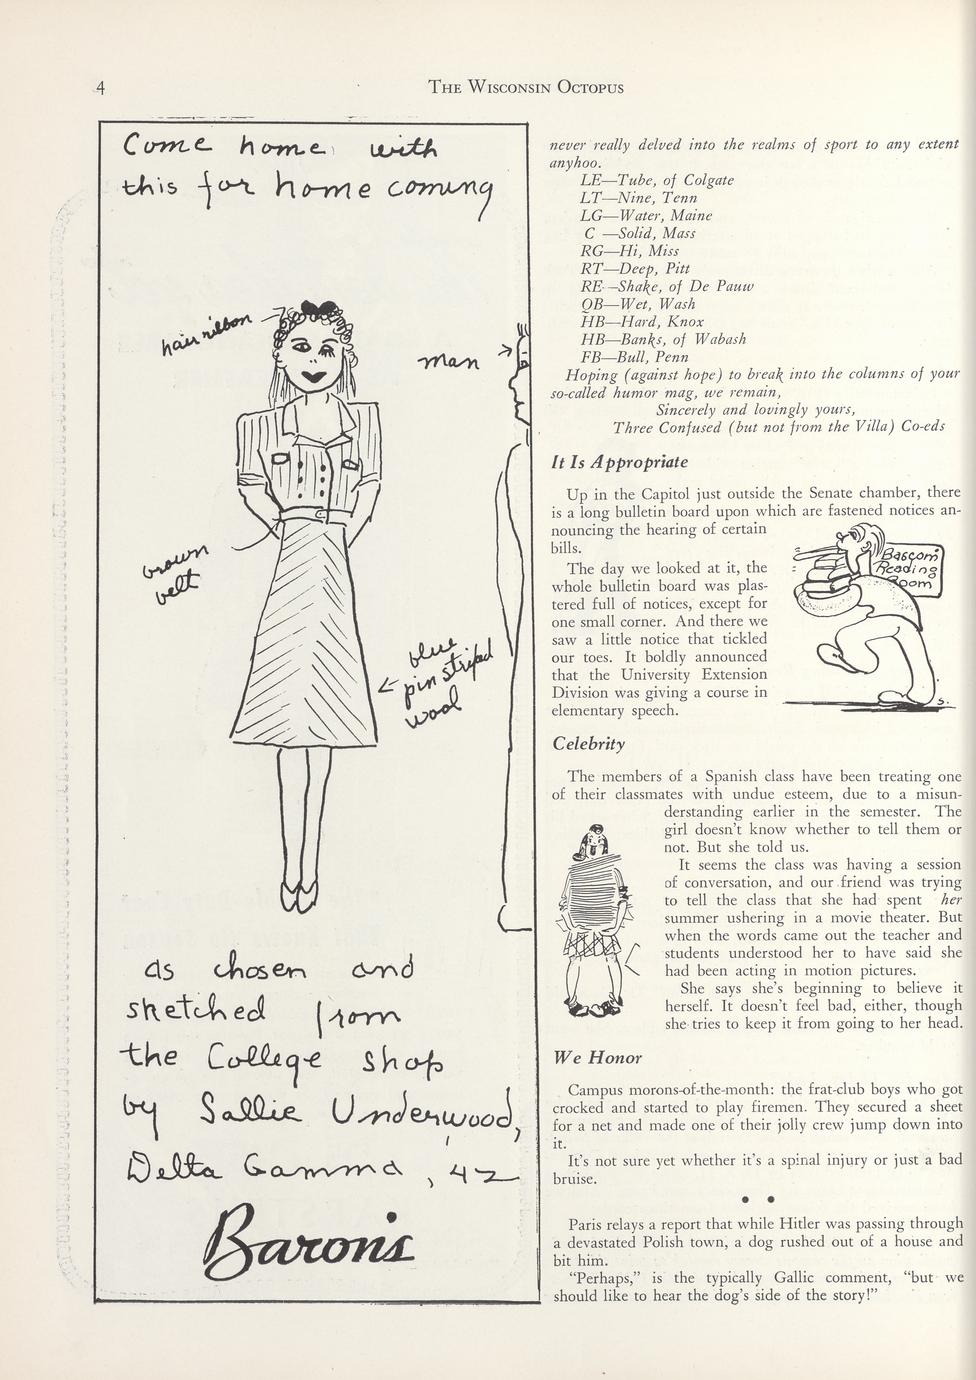 4
THE WISCONSIN OCTOPUS
Come home with
this for home coming
hair ribbon
man
brown
belt
blue
pin striped
wool
as chosen and
sketched from
the College shop
by Sallie Underwood,
Delta Gamma, '42
Baron's
never really delved into the realms of sport to any extent
anyhoo.
LE—Tube, of Colgate
LT—Nine, Tenn
LG—Water, Maine
C —Solid, Mass
RG—Hi, Miss
RT—Deep, Pitt
RE—Shake, of De Pauw
QB—Wet, Wash
HB—Hard, Knox
HB—Banks, of Wabash
FB—Bull, Penn
Hoping (against hope) to break into the columns of your
so-called humor mag, we remain,
Sincerely and lovingly yours,
Three Confused (but not from the Villa) Co-eds
It Is Appropriate
Up in the Capitol just outside the Senate chamber, there
is a long bulletin board upon which are fastened notices an-
nouncing the hearing of certain
bills.
The day we looked at it, the
whole bulletin board was plas-
tered full of notices, except for
one small corner. And there we
saw a little notice that tickled
our toes. It boldly announced
that the University Extension
Division was giving a course in
elementary speech.
Bascom
Reading
Room
S.
Celebrity
The members of a Spanish class have been treating one
of their classmates with undue esteem, due to a misun-
derstanding earlier in the semester. The
girl doesn't know whether to tell them or
not. But she told us.
It seems the class was having a session
of conversation, and our friend was trying
to tell the class that she had spent her
summer ushering in a movie theater. But
when the words came out the teacher and
students understood her to have said she
had been acting in motion pictures.
She says she's beginning to believe it
herself. It doesn't feel bad, either, though
she tries to keep it from going to her head.
We Honor
Campus morons-of-the-month: the frat-club boys who got
crocked and started to play firemen. They secured a sheet
for a net and made one of their jolly crew jump down into
it.
It's not sure yet whether it's a spinal injury or just a bad
bruise.
• •
Paris relays a report that while Hitler was passing through
a devastated Polish town, a dog rushed out of a house and
bit him.
"Perhaps," is the typically Gallic comment, "but we
should like to hear the dog's side of the story!"